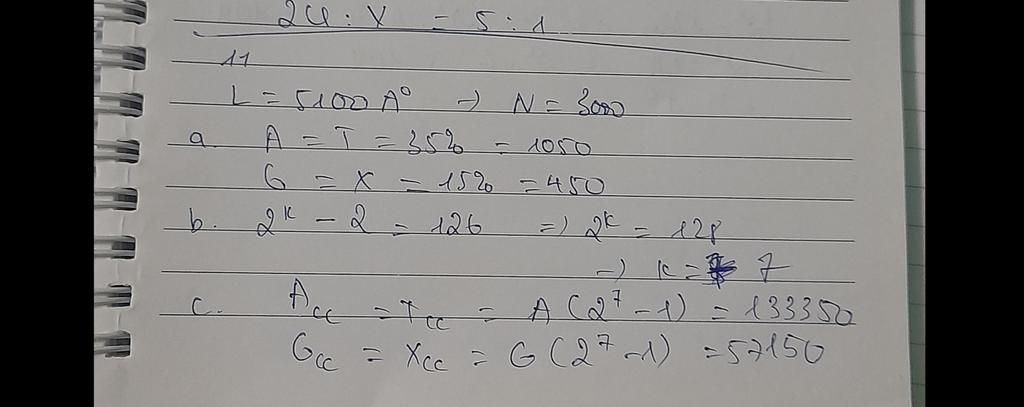 24 : X = 5 : 1
11
L = 5100 A⁰ → N = 3000
a. A = T = 35% = 1050
G = X = 15% = 450
b. 2ᵏ - 2 = 126 => 2ᵏ = 128
→ k = 7
c. Acc = Tcc = A (2⁷ - 1) = 133350
Gcc = Xcc = G (2⁷ - 1) = 57150